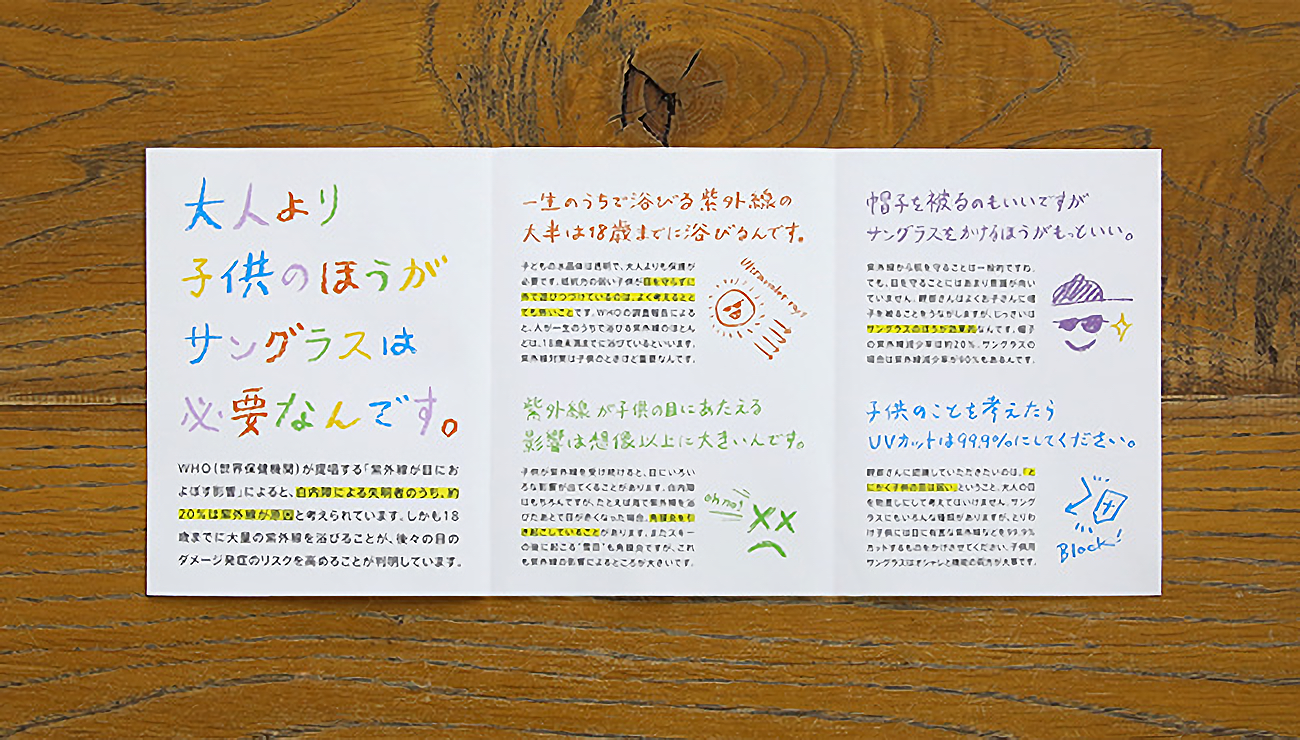 大人より
子供のほうが
サングラスは
必要なんです。
WHO(世界保健機関)が提唱する「紫外線が目にお
よぼす影響」によると、白内障による失明者のうち、約
20%は紫外線が原因と考えられています。しかも18
歳までに大量の紫外線を浴びることが、後々の目の
ダメージ発症のリスクを高めることが判明しています。
一生のうちで浴びる紫外線の
大半は18歳までに浴びるんです。
子どもの水晶体は透明で、大人よりも保護が
必要です。抵抗力の弱い子供が目を守らずに
外で遊びつづけているのは、よく考えるとと
ても怖いことです。WHOの調査報告による
と、人が一生のうちで浴びる紫外線のほとん
どは、18歳未満までに浴びているといいます。
紫外線対策は子供のときほど重要なんです。
Ultraviolet rays!
紫外線が子供の目にあたえる
影響は想像以上に大きいんです。
子供が紫外線を受け続けると、目にいろい
ろな影響が出てくることがあります。白内障
はもちろんですが、たとえば海で紫外線を浴
びたあとで目が赤くなった場合、角膜炎を引
き起こしていることがあります。またスキー
の後に起こる“雪目”も角膜炎ですが、これ
も紫外線の影響によるところが大きいです。
oh no!
帽子を被るのもいいですが
サングラスをかけるほうがもっといい。
紫外線から肌を守ることは一般的ですね。
でも、目を守ることにはあまり意識が向い
ていません。親御さんはよくお子さんに帽
子を被ることをうながしますが、じっさいは
サングラスのほうが効果的なんです。帽子
の紫外線減少率は約20%。サングラスの
場合は紫外線減少率が90%もあるんです。
子供のことを考えたら
UVカットは99.9%にしてください。
親御さんに認識していただきたいのは、「と
にかく子供の目は弱い」ということ。大人の目
を物差しにして考えてはいけません。サング
ラスにもいろんな種類がありますが、とりわ
け子供には目に有害な紫外線などを99.9%
カットするものをかけさせてください。子供用
サングラスはオシャレと機能の両方が大事です。
Block!